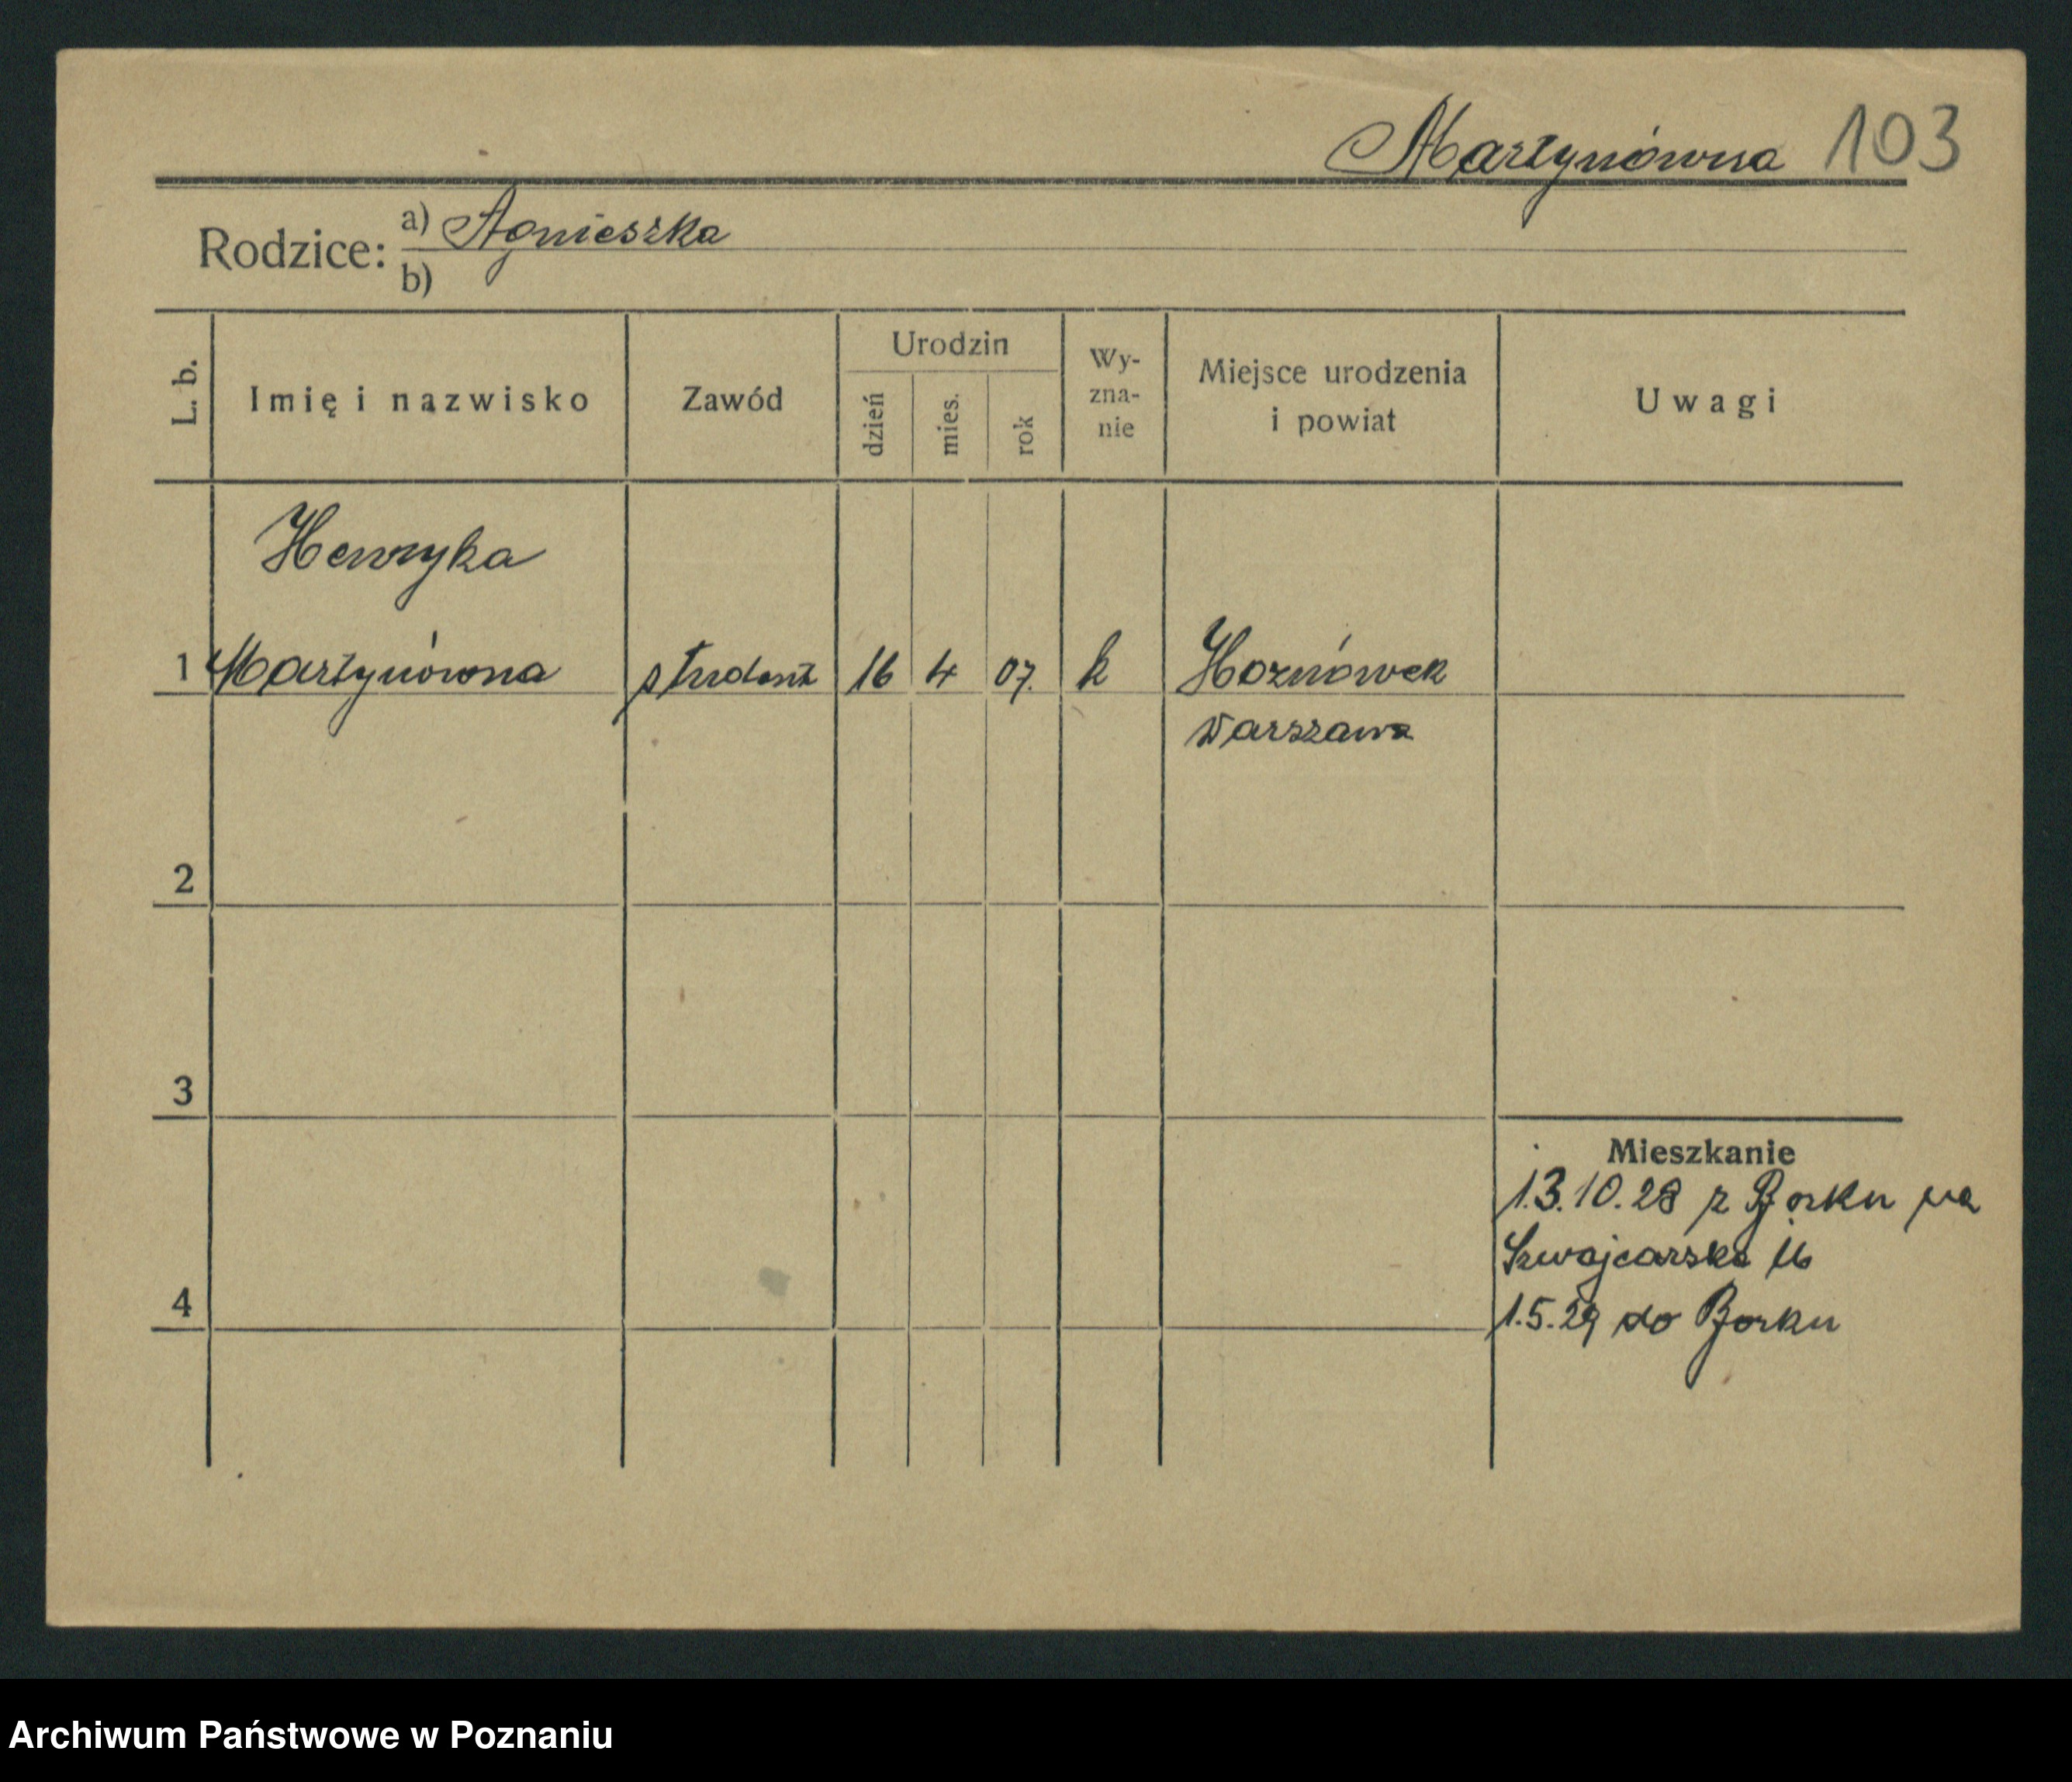 Martynówna 103
Rodzice: a) Agnieszka
b)
L. b. Imię i nazwisko Zawód Urodzin dzień mies. rok Wy-zna-nie Miejsce urodzenia i powiat Uwagi
Henryka
1 Martynówna student 16 4 07. k Hoznówek
Warszawa
2
3
Mieszkanie
13.10.28 z Borku na
Szwajcarska 16
4
1.5.29 do Borku
Archiwum Państwowe w Poznaniu